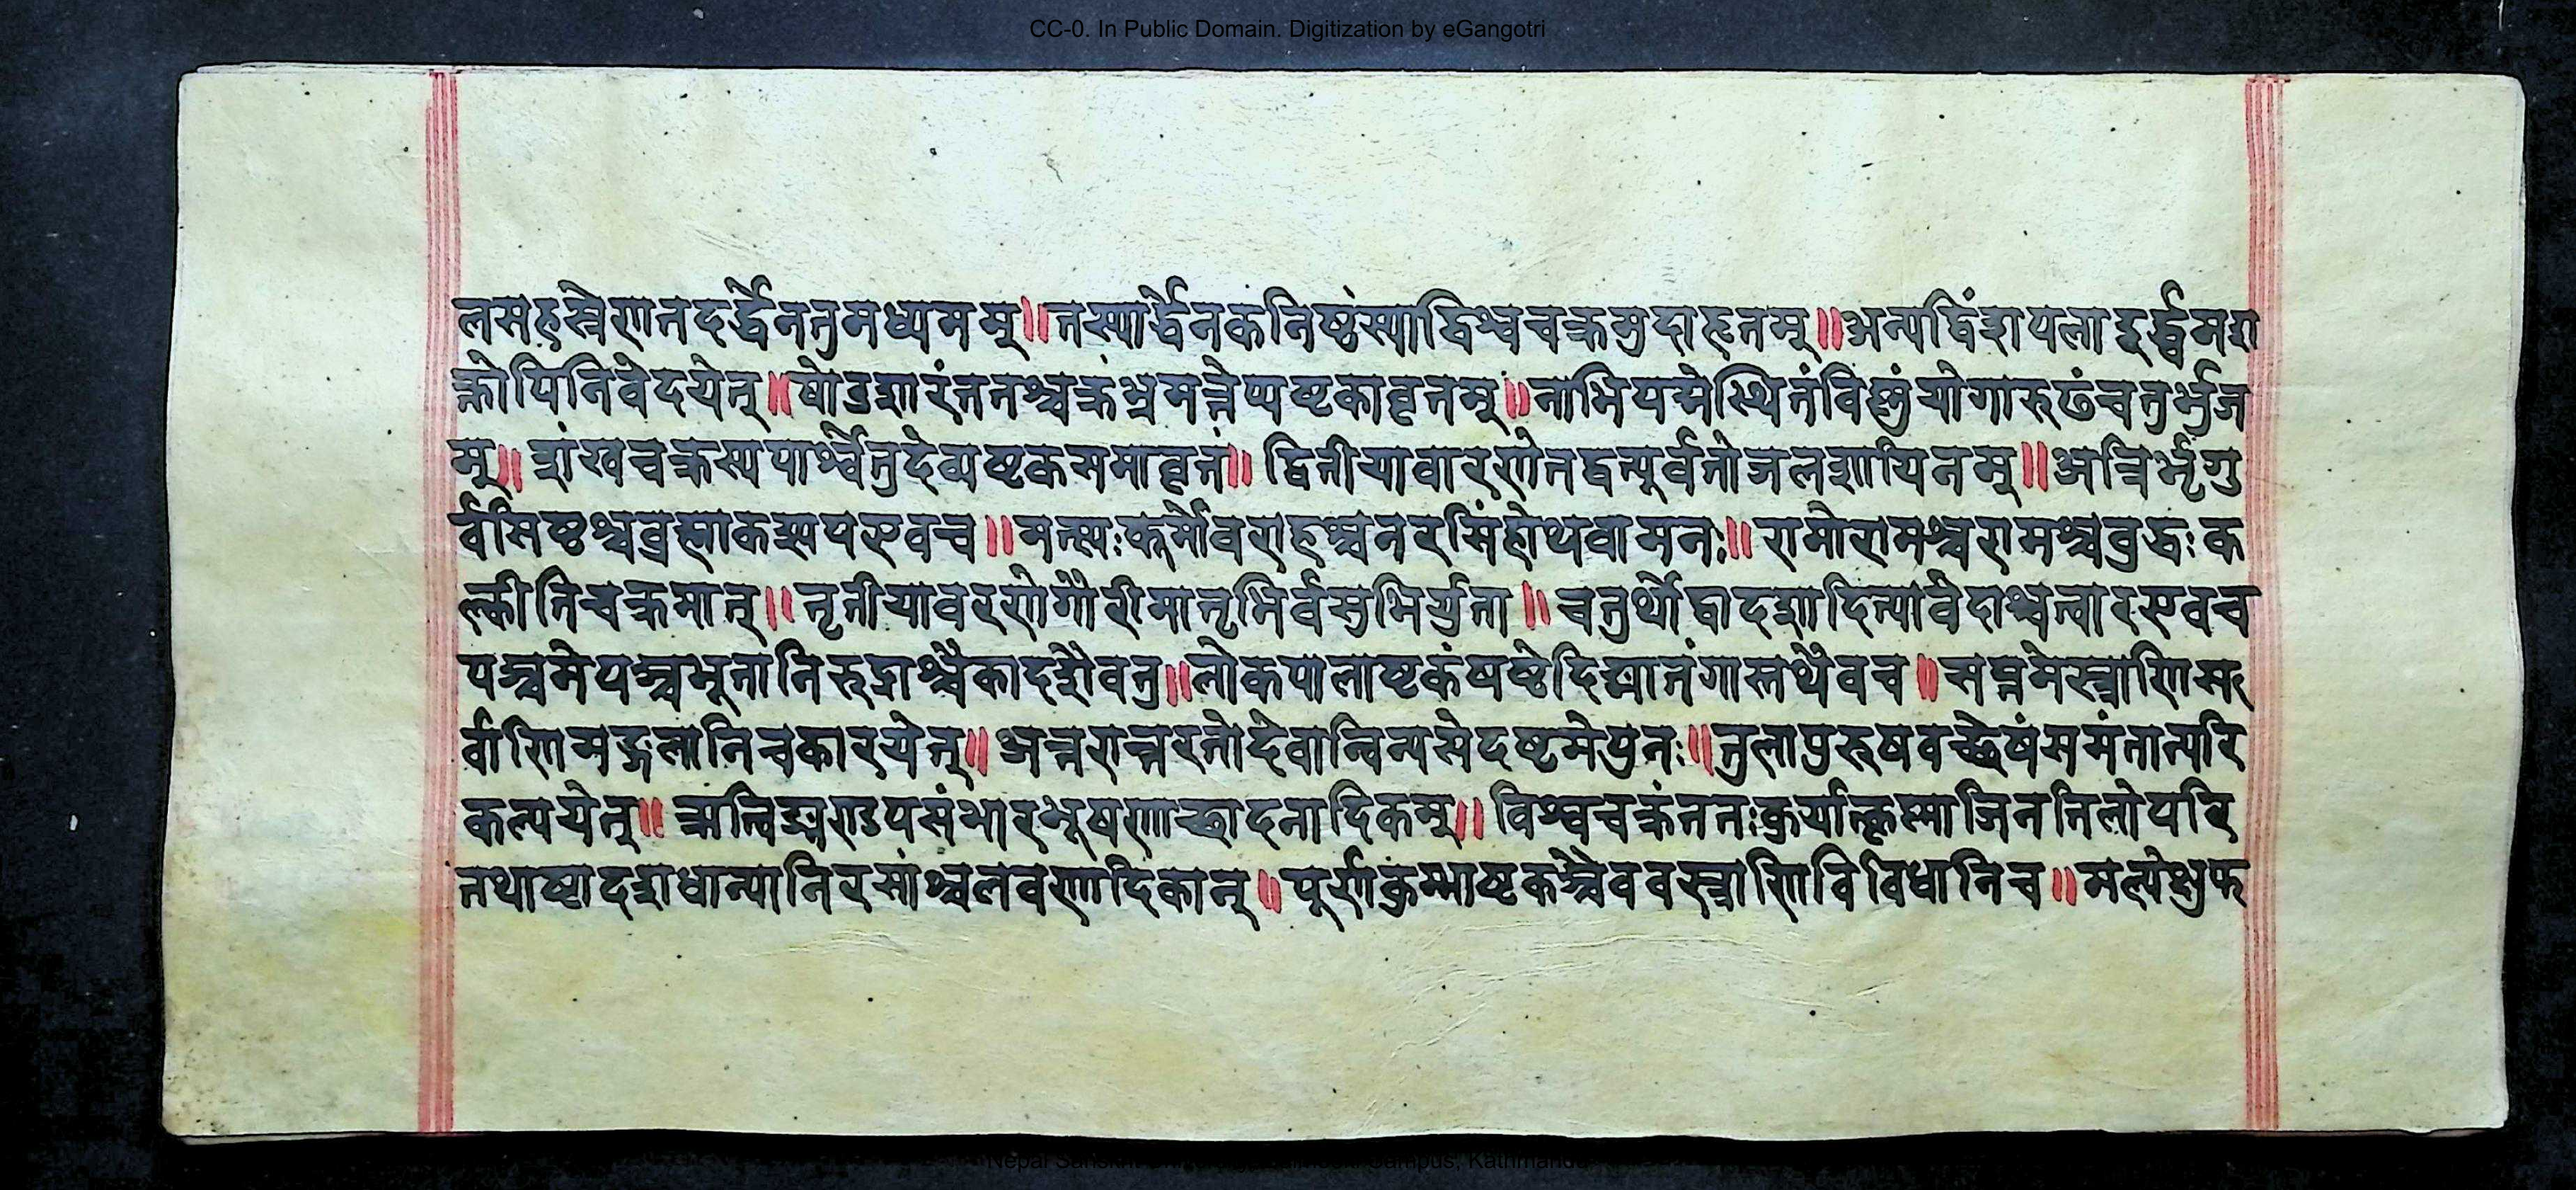 CC-0. In Public Domain. Digitization by eGangotri
लसहस्रेणतदर्द्धेनतुमध्यमम्॥तस्यार्द्धेनकनिष्ठंस्याद्विश्वचक्रमुदाहृतम्॥अन्यद्विंशपलादूर्द्ध्वमश
क्तोपिनिवेदयेत्॥षोडशारंततश्चक्रंभ्रमन्नेम्यष्टकावृतम्॥नाभिपद्मेस्थितंविष्णुंयोगारुढंचतुर्भुज
म्॥शंखचक्रस्यपार्श्वेतुदेव्यष्टकसमावृतं॥द्वितीयावारणेतद्वत्पूर्वतोजलशायिनम्॥अत्रिर्भृगु
र्वसिष्ठश्चब्रह्माकश्यपएवच॥मत्स्यःकूर्मोवराहश्चनरसिंहोथवामनः॥रामोरामश्चरामश्चबुद्धःक
ल्कीतिचक्रमात्॥तृतीयावरणेगौरीमातृभिर्वसुभिर्युता॥चतुर्थोद्वादशादित्यावेदाश्चत्वारएवच
पञ्चमेपञ्चभूतानिरुद्राश्चैकादशैवतु॥लोकपालाष्टकंषष्ठेदिङ्मातंगास्तथैवच॥सप्तमेस्त्राणिस
र्वाणिमङ्गलानिचकारयेत्॥अन्तरान्तरतोदेवान्विन्यसेदष्टमेपुनः॥तुलापुरुषवच्छेषंसमंतात्परि
कल्पयेत्॥ऋत्विङ्मण्डपसंभारभूषणाच्छादनादिकम्॥विश्वचक्रंततःकुर्यात्कृष्णाजिनतिलोपरि
तथाष्टादशधान्यानिरसांश्चलवणादिकान्॥पूर्णकुम्भाष्टकञ्चैववस्त्राणिविविधानिच॥मल्येक्षुफ